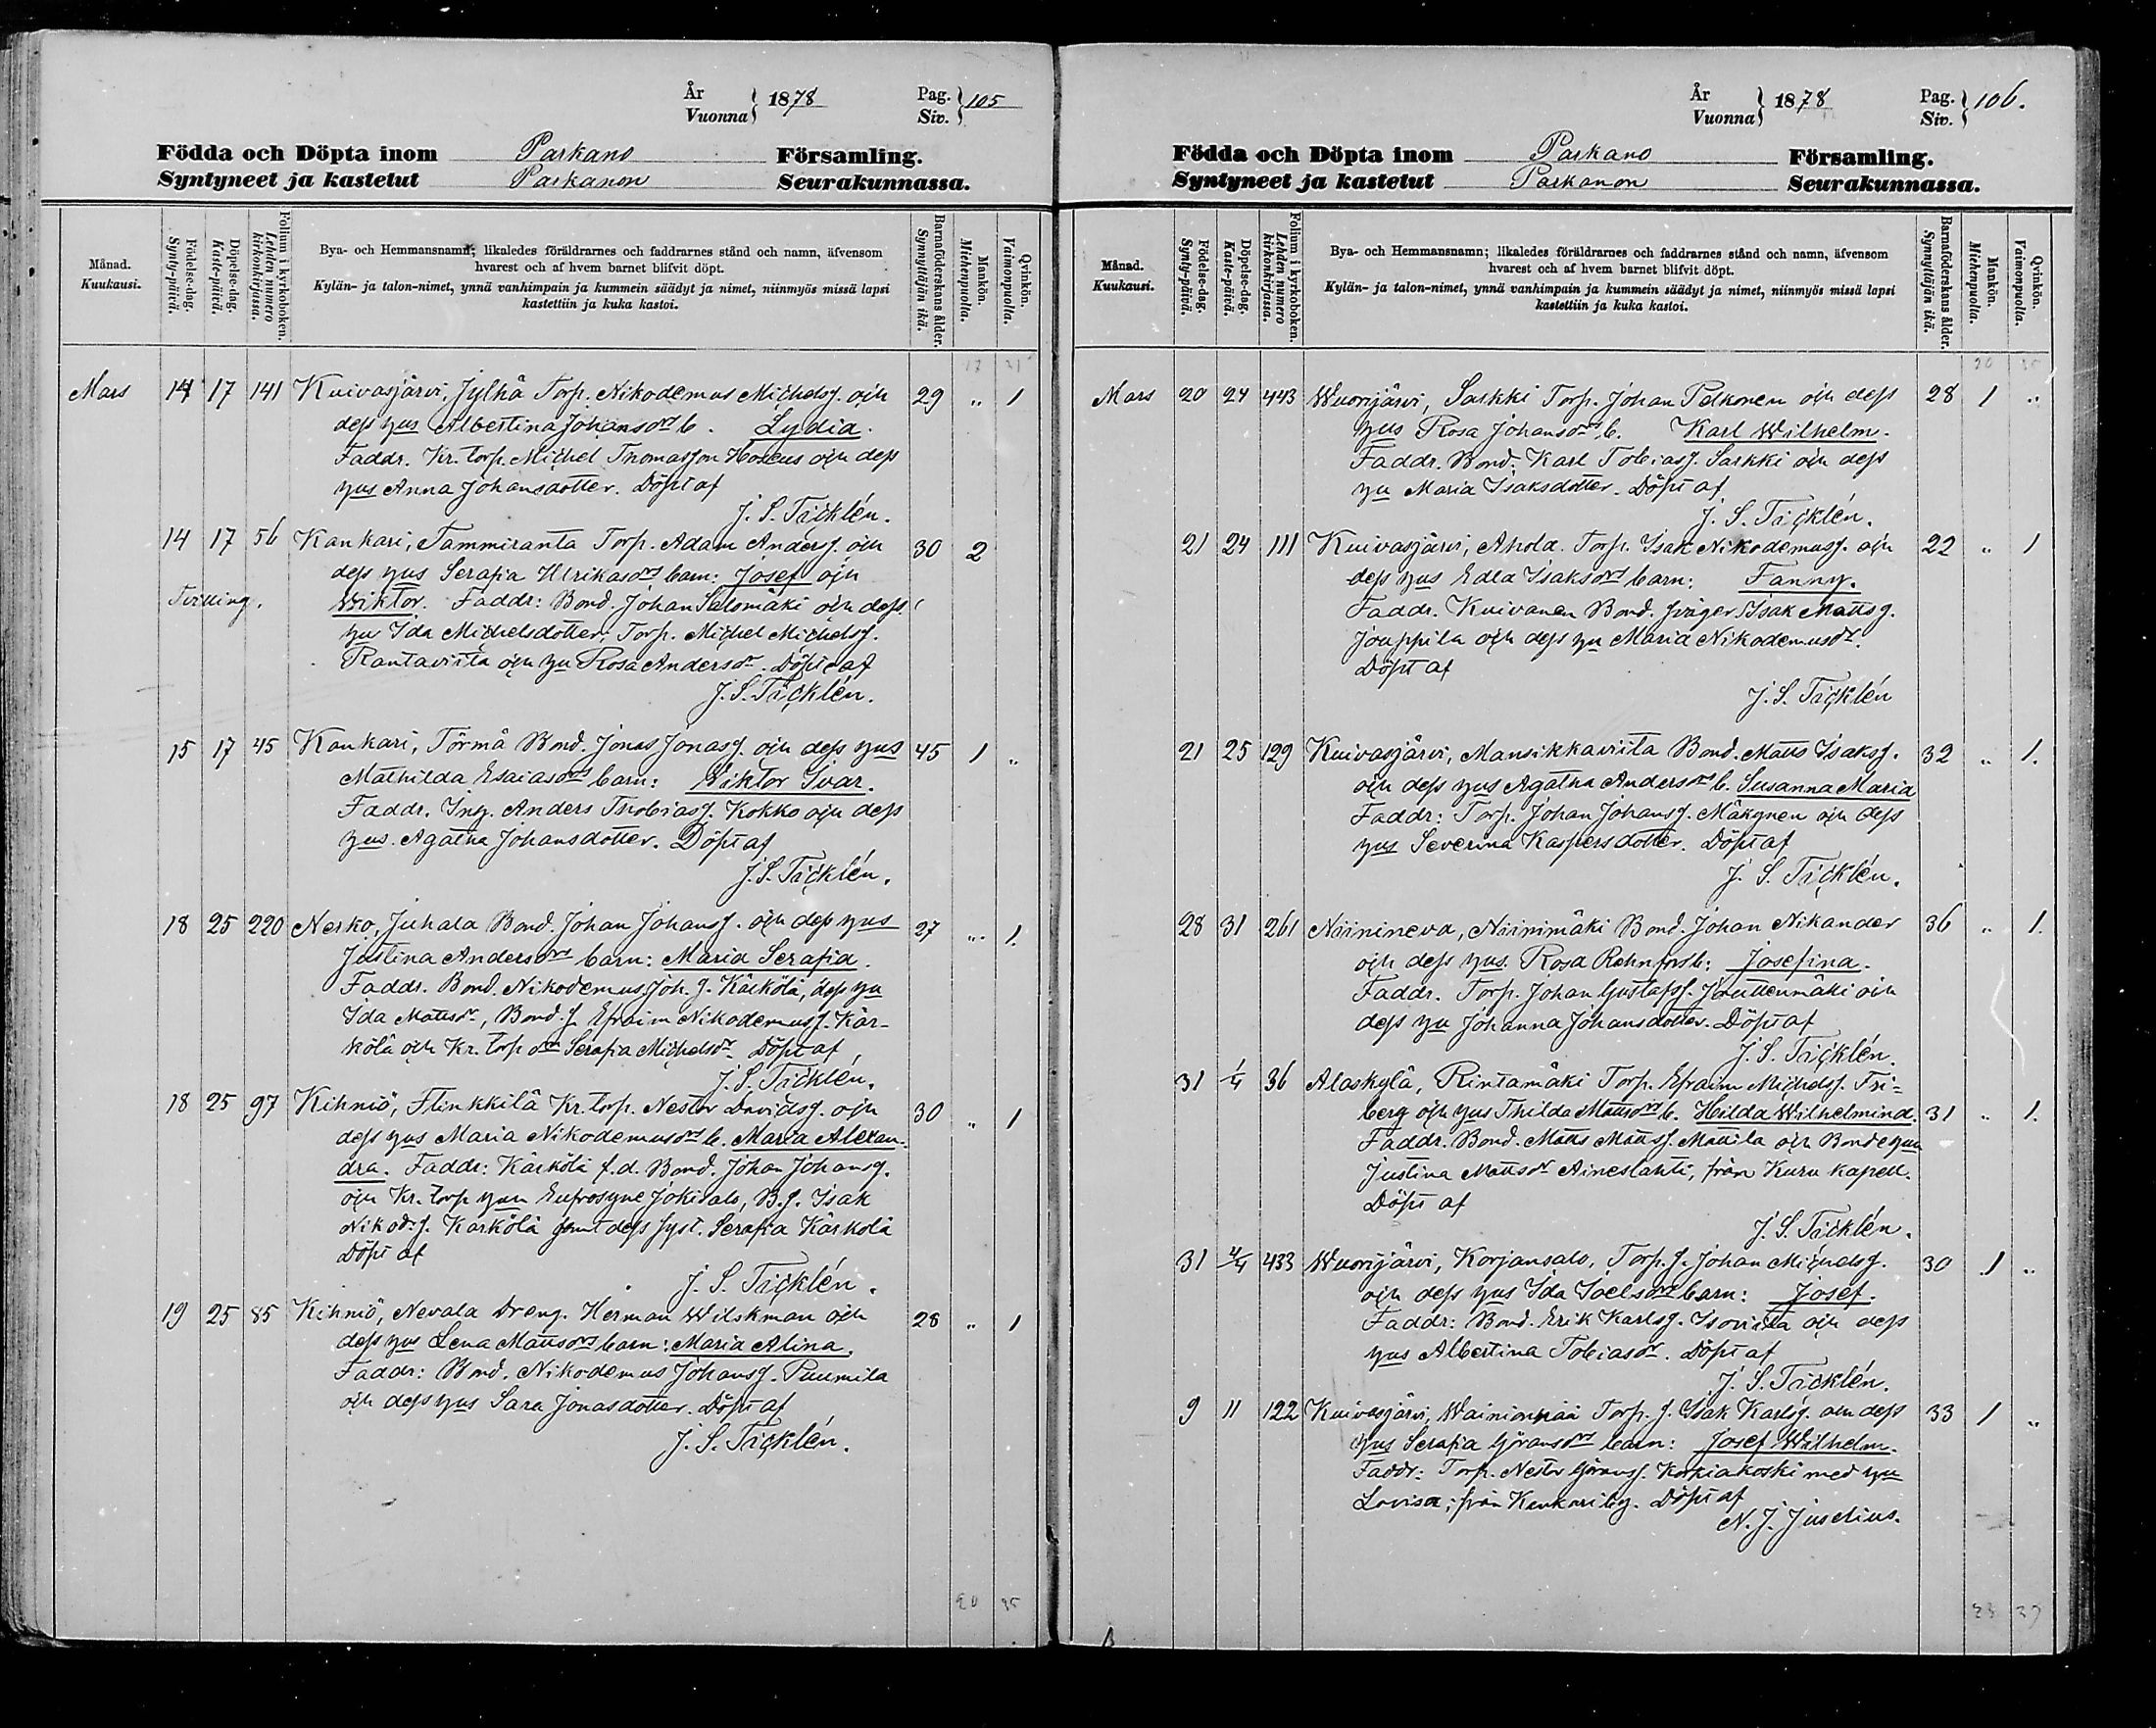 År
Vuonna } 1878
Pag.
Siv. } 105
Födda och Döpta inom Parkano Församling.
Syntyneet ja kastetut Parkanon Seurakunnassa.
Månad.
Kuukausi.
Födelse-dag.
Synty-päivä.
Döpelse-dag.
Kaste-päivä.
Folium i kyrkoboken.
Lehden numero
kirkonkirjassa.
Bya- och Hemmansnamn; likaledes föräldrarnes och faddrarnes stånd och namn, äfvensom
hvarest och af hvem barnet blifvit döpt.
Kylän- ja talon-nimet, ynnä vanhimpain ja kummein säädyt ja nimet, niinmyös missä lapsi
kastettiin ja kuka kastoi.
Barnaföderskans ålder.
Synnyttäjän ikä.
Mankön.
Miehenpuolia.
Qvinkön.
Vaimonpuolia.
17 31
Mars 14 17 141 Kuivasjärvi, Jylhä Torp. Nikodemus Michelsş. och 29 „ 1
dess hus Albertina Johansdrs b. Lydia.
Faddr. Kr. torp. Michel Thomasson Horeus och dess
hus Anna Johansdotter. Döpt af
J. S. Täcklén.
14 17 56 Kankari, Tammiranta Torp. Adam Anderss. och 30 2
dess hus Serafia Ulrikasdrs barn: Josef och
Tvilling. Wiktor. Faddr: Bond. Johan Salomäki och dess
hus Ida Michelsdotter, Torp. Michel Michelss.
Rantaviita och hu Rosa Andersdr. Döpt af
J. S. Täcklén.
15 17 45 Kankari, Törmä Bond. Jonas Jonass. och dess hus 45 1 „
Mathilda Esaiasdrs barn: Wiktor Ivar.
Faddr. Ing. Anders Thobiass. Kokko och dess
hus. Agatha Johansdotter. Döpt af
J. S. Täcklén.
18 25 220 Nerko, Juhala Bond. Johan Johanss. och dess hus 27 „ 1.
Justina Andersdrs barn: Maria Serafia.
Faddr. Bond. Nikodemus Joh. s. Kärkölä, dess hu
Ida Mattsdr, Bond. s. Efraim Nikodemuss. Kär-
kölä och Kr. torp. dr Serafia Michelsdr. Döpt af
J. S. Täcklén.
18 25 97 Kihniö, Flinkkilä Kr. torp. Nestor Davidss. och 30 „ 1
dess hus Maria Nikodemusdrs b. Maria Alexan-
dra. Faddr: Kärkölä f.d. Bond. Johan Johanss.
och Kr. torp hun Eufrosyne Jokisalo, B. s. Isak
Nikod. s. Kärkölä samt dess syst. Serafia Kärkölä
Döpt af
J. S. Täcklén.
19 25 85 Kihniö, Nevala Dreng. Herman Wilskman och 28 „ 1
dess hu Lena Mattsdrs barn: Maria Alina.
Faddr: Bond. Nikodemus Johanss. Puumila
och dess hus Sara Jonasdotter. Döpt af
J. S. Täcklén.
20 35
År
Vuonna } 1878
Pag.
Siv. } 106.
Födda och Döpta inom Parkano Församling.
Syntyneet ja kastetut Parkanon Seurakunnassa.
Månad.
Kuukausi.
Födelse-dag.
Synty-päivä.
Döpelse-dag.
Kaste-päivä.
Folium i kyrkoboken.
Lehden numero
kirkonkirjassa.
Bya- och Hemmansnamn; likaledes föräldrarnes och faddrarnes stånd och namn, äfvensom
hvarest och af hvem barnet blifvit döpt.
Kylän- ja talon-nimet, ynnä vanhimpain ja kummein säädyt ja nimet, niinmyös missä lapsi
kastettiin ja kuka kastoi.
Barnaföderskans ålder.
Synnyttäjän ikä.
Mankön.
Miehenpuolia.
Qvinkön.
Vaimonpuolia.
20 35
Mars 20 24 443 Wuorijärvi, Sarkki Torp. Johan Pelkonen och dess 28 1 „
hus Rosa Johansdrs b. Karl Wilhelm.
Faddr. Bond. Karl Tobiass. Sarkki och dess
hu Maria Isaksdotter. Döpt af
J. S. Täcklén.
21 24 111 Kuivasjärvi, Ahola. Torp. Isak Nikodemuss. och 22 „ 1
dess hus Edla Isaksdrs barn: Fanny.
Faddr. Kuivanen Bond. sväger Isak Mattss.
Jouppila och dess hu Maria Nikodemusdr.
Döpt af
J. S. Täcklén
21 25 129 Kuivasjärvi, Mansikkaviita Bond. Matts Isakss. 32 „ 1.
och dess hus Agatha Andersdrs b. Susanna Maria
Faddr: Torp. Johan Johanss. Mäkynen och dess
hus Severina Kaspersdotter. Döpt af
J. S. Täcklén.
28 31 261 Niinineva, Niinimäki Bond. Johan Nikander 36 „ 1.
och dess hus. Rosa Rehnfors b: Josefina.
Faddr. Torp. Johan Gustafss. Jauttenmäki och
dess hu Johanna Johansdotter. Döpt af
J. S. Täcklén.
31 1/4 36 Alaskylä, Rintamäki Torp. Efraim Michelss. Fri-
berg och hus Thilda Mattsdrs b. Hilda Wilhelmina. 31 „ 1.
Faddr. Bond. Matts Mattss. Mattila och Bondehun
Justina Mattsdr Aineslahti, från Kuru kapell.
Döpt af
J. S. Täcklén.
31 4/4 433 Wuorijärvi, Korjansalo, Torp. s. Johan Michelss. 30 1 „
och dess hus Ida Joelsdrs barn: Josef.
Faddr: Bond. Erik Karlss. Isoviita och dess
hus Albertina Tobiasdr. Döpt af
J. S. Täcklén.
9 11 122 Kuivasjärvi, Wainionpää Torp. s. Isak Karlss. och dess 33 1 „
hus Serafia Göransdrs barn: Josef Wilhelm.
Faddr: Torp. Nestor Göranss. Korkiakoski med hu
Lovisa; från Kankari by. Döpt af
N. J. Juselius.
23 39